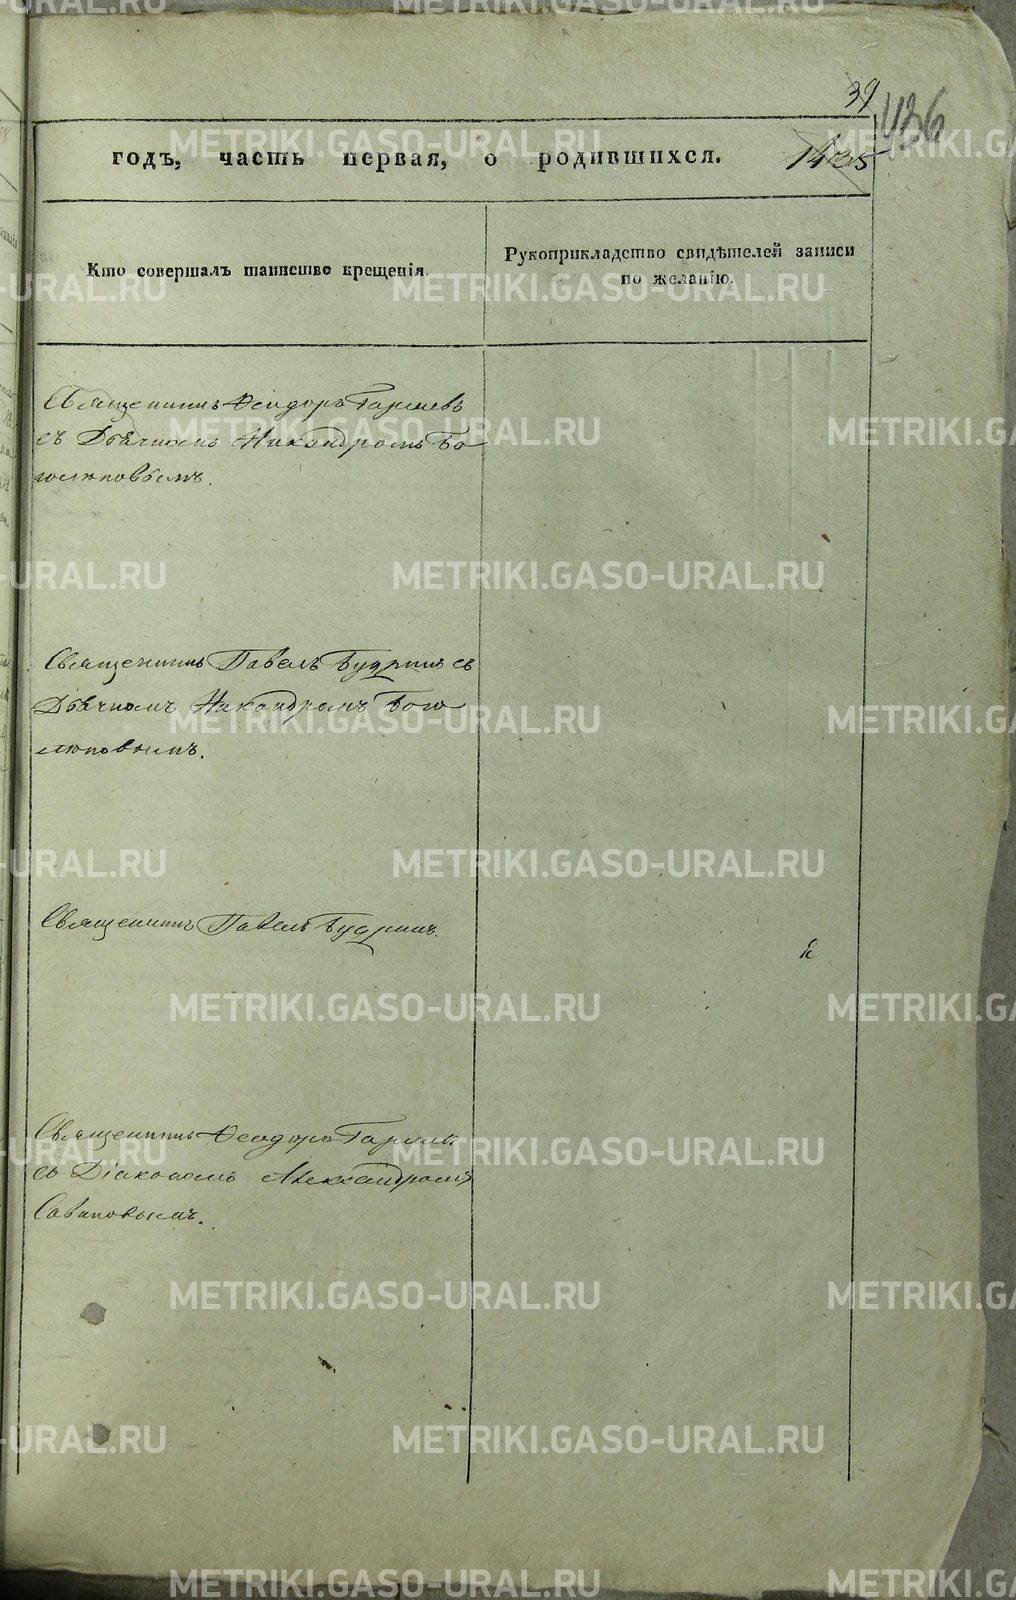 39
436
годъ, часть первая, о родившихся.
1435
Кто совершалъ таинство крещенія.
Рукоприкладство свидѣтелей записи
по желанію.
Священникъ Ѳеодоръ
съ Дьячкомъ Никандромъ Бо
голюповымъ.
Священникъ Павелъ Будринъ съ
Дьячкомъ Никандромъ Бого
люповымъ.
Священникъ Павелъ Будринъ.
Священникъ Ѳеодоръ
съ Діакономъ Александромъ
METRIKI.GASO-URAL.RU